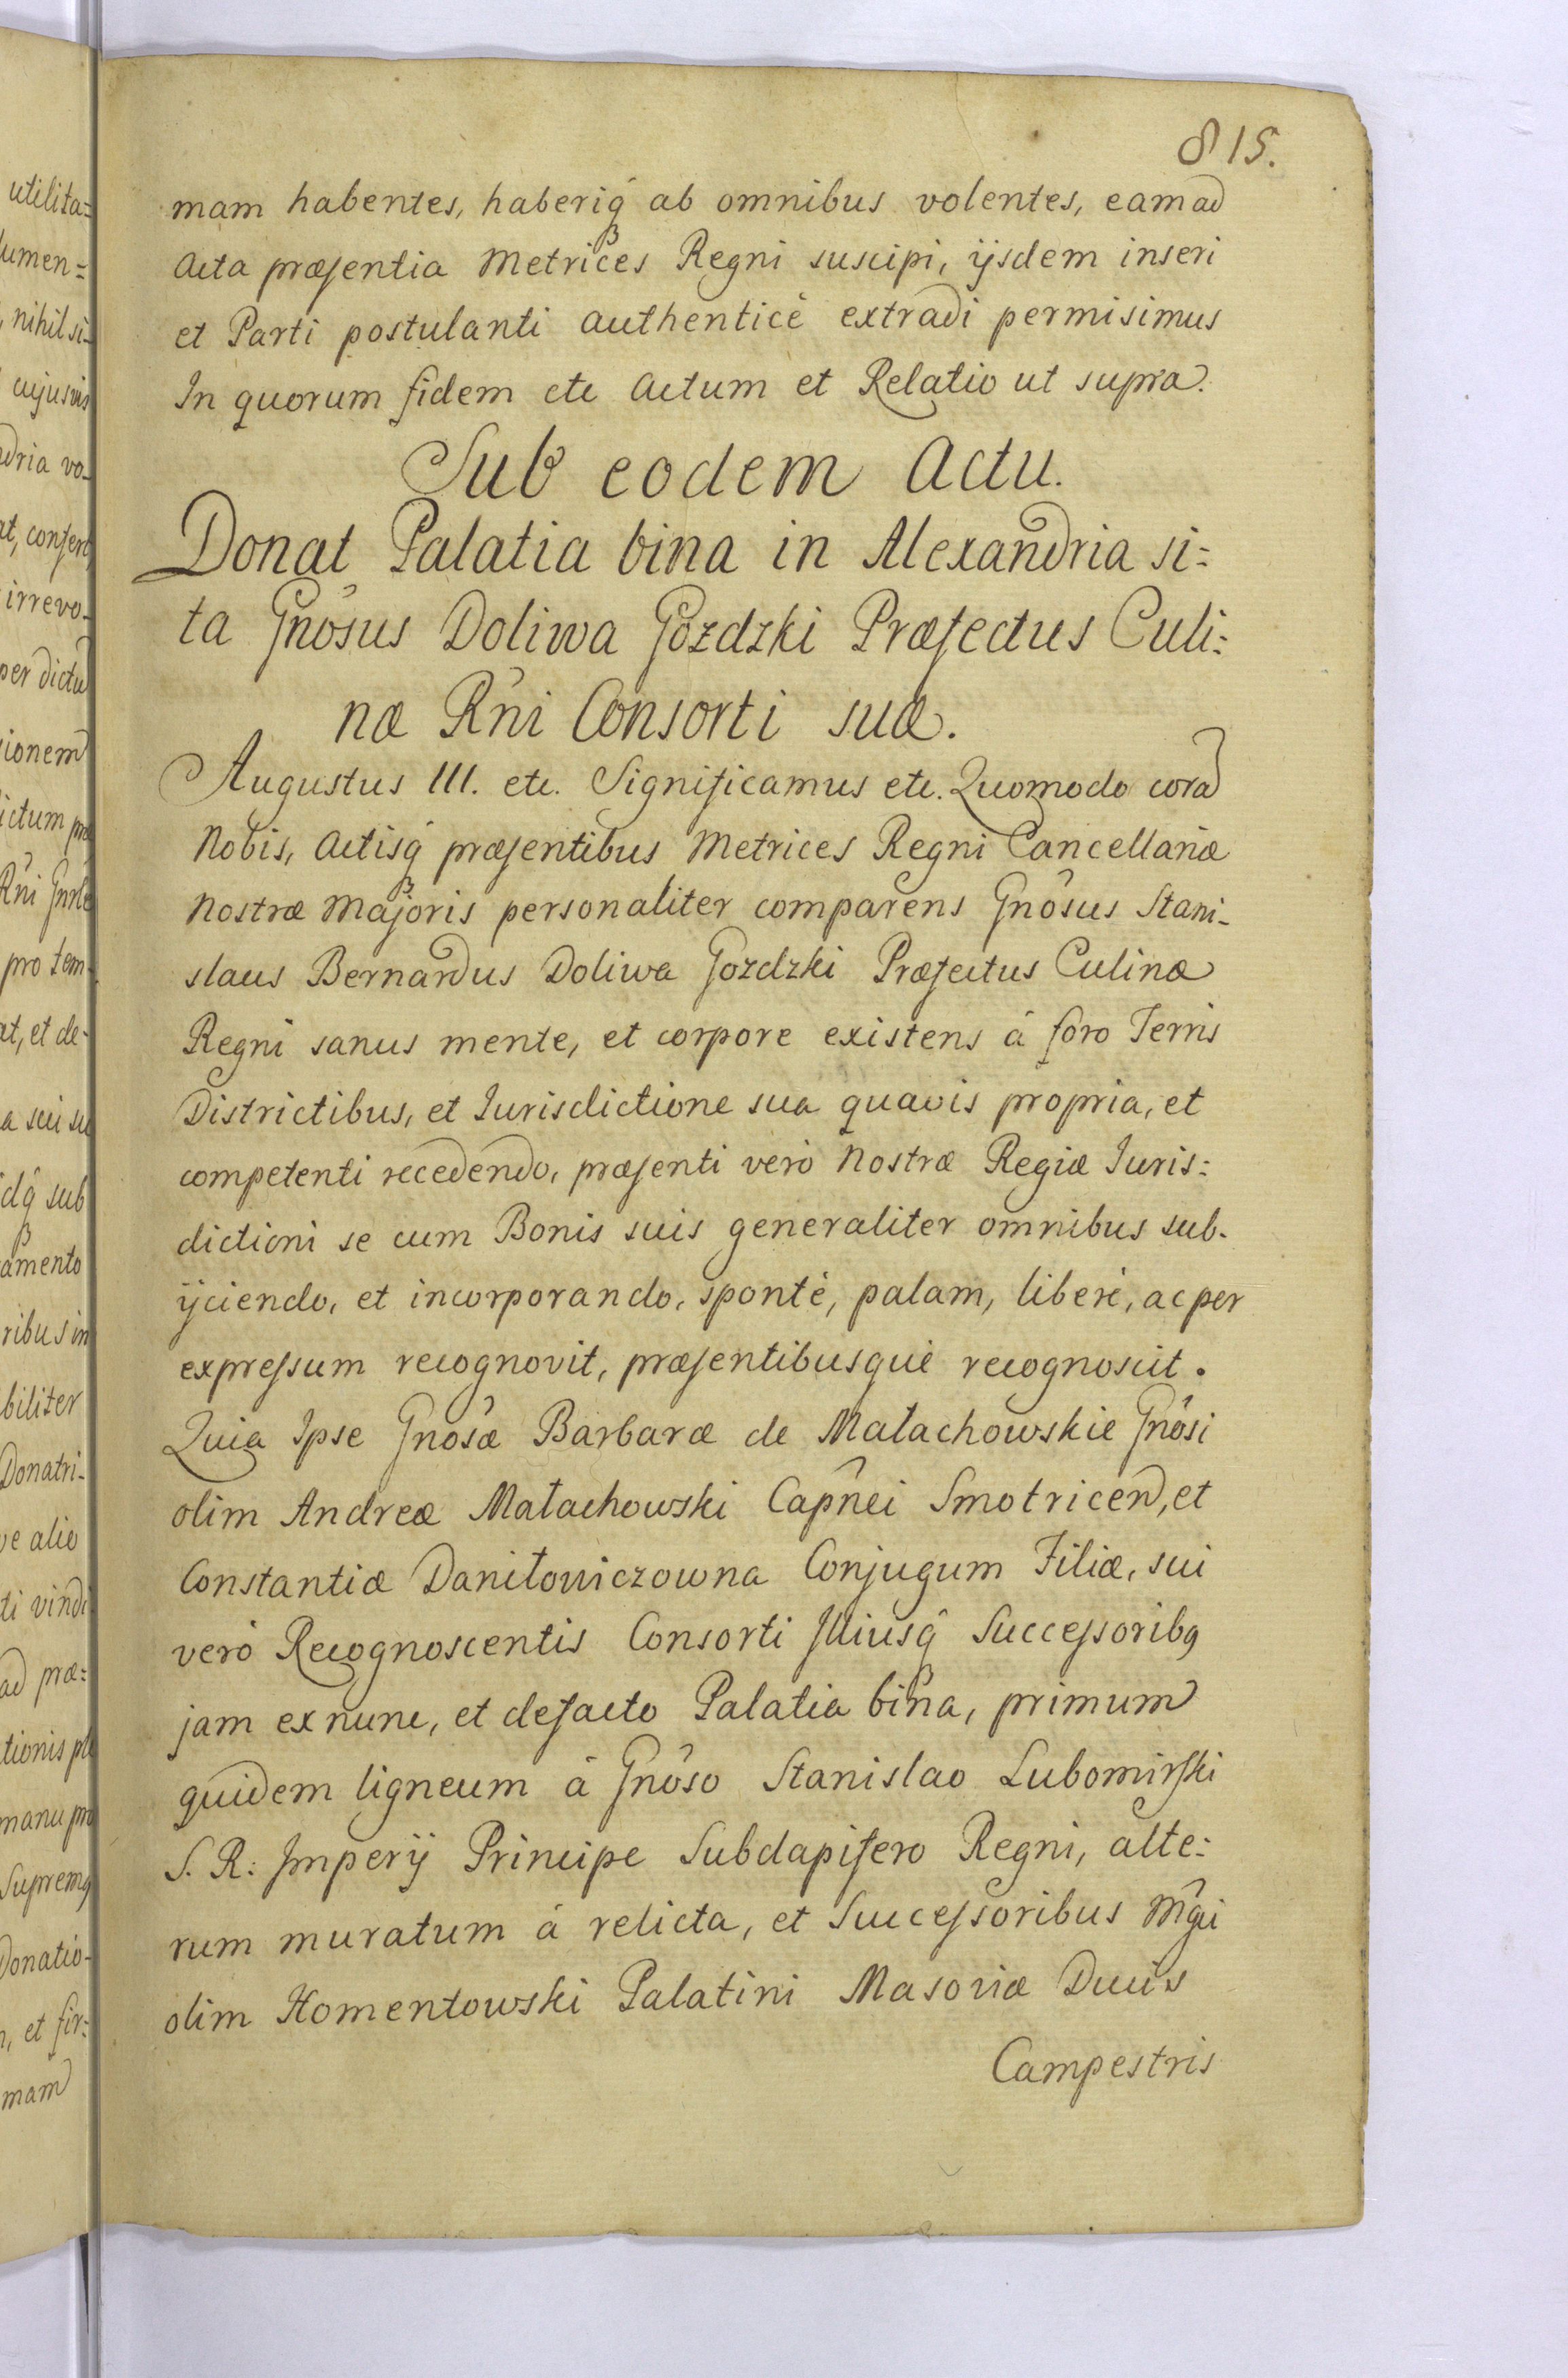 815.
mam habentes, haberiq́ ab omnibus volentes, eam ad
Acta præsentia Metrices Regni suscipi, ijsdem inseri
et Parti postulanti authenticè extradi permisimus
In quorum fidem etc Actum et Relatio ut supra.
Sub eodem Actu.
Donat Palatia bina in Alexandria si=
ta Gnõsus Doliwa Gozdzki Præfectus Culi=
næ Rñi Consorti suæ.
Augustus III. etc. Significamus etc. Quomodo corã
Nobis, Actisq́ præsentibus Metrices Regni Cancellariæ
Nostræ Majoris personaliter comparens Gnôsus Stani-
slaus Bernardus Doliwa Gozdzki Præfectus Culinæ
Regni sanus mente, et corpore existens á foro Terris
Districtibus, et Jurisdictione sua quavis propria, et
competenti recedendo, præsenti verò Nostræ Regiæ Juris=
dictioni se cum Bonis suis generaliter omnibus sub-
ijciendo, et incorporando, spontè, palam, liberè, ac per
expressum recognovit, præsentibusquè recognoscit.
Quia Ipse Gnôsæ Barbaræ de Małachowskie Gnôsi
olim Andreæ Małachowski Capñei Smotricen, et
Constantiæ Daniłowiczowna Conjugum Filiæ, sui
verò Recognoscentis Consorti Illiusq́ Successoribq
jam ex nunc, et defacto Palatia bina, primum
quidem ligneum á Gnôso Stanislao Lubomirski
S. R: Imperij Principe Subdapifero Regni, alte=
rum muratum á relicta, et Successoribus Mg̃ci
olim Homentowski Palatini Masoviæ Ducis
Campestris
utilita=
lumen=
nihil si-
cujusvis
dria vo-
at, confert
irrevo-
per dictu
ionem
ictum præ
Rñi Gnrle
pro tem
at, et de-
a sui su
dq́ sub
amento
ribus in
biliter
Donatri-
ve alio
ti vindi
ad præ=
tionis ple
manu pro
Supremq
Donatio-
, et fir=
mam